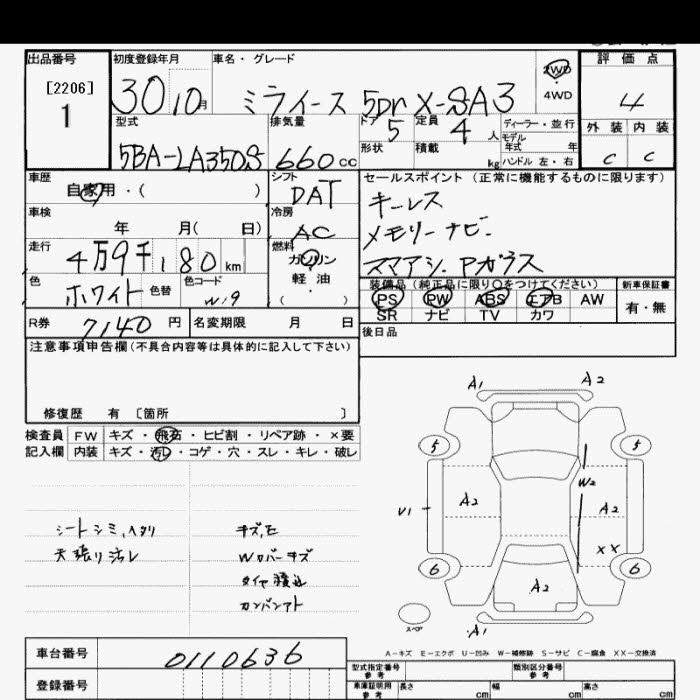 出品番号
[2206]
1
初度登録年月
30 10月
車名・グレード
ミライース 5DR X-SA3
2WD
4WD
評価点
4
外装 内装
C C
型式
5BA-LA350S
排気量
660 cc
ドア
5
定員
4 人
ディーラー・並行
モデル
年式 年
形状
積載
kg
ハンドル 左・右
車歴
自家用・( )
シフト
DAT
車検
年 月( 日)
冷房
AC
走行
4万9千180 km
燃料
ガソリン
軽油
( )
色
ホワイト
色替
色コード
W19
R券
7140 円
名変期限 月 日
セールスポイント (正常に機能するものに限ります)
キーレス
メモリーナビ
スマアシ. Pガラス
装備品(純正品に限り〇をつけてください)
PS PW ABS エアB AW
SR ナビ TV カワ
新車保証書
有・無
後日品
注意事項申告欄(不具合内容等は具体的に記入して下さい)
修復歴 有 [箇所 ]
検査員 FW キズ・飛石・ヒビ割・リペア跡・×要
記入欄 内装 キズ・汚レ・コゲ・穴・スレ・キレ・破レ
シートシミ,ヘタリ
天張り汚レ
キズ,E
Wカバーキズ
タイヤ積込
カンバンアト
A1 A2
5 5
W2
U1
A2 A2
XX
6 6
A2
スペア
A1
A-キズ E-エクボ U-凹み W-補修跡 S-サビ C-腐食 XX-交換済
車台番号
0110636
登録番号
型式指定番号
参考
類別区分番号
参考
車庫証明用
参考
長さ cm
幅 cm
高さ cm